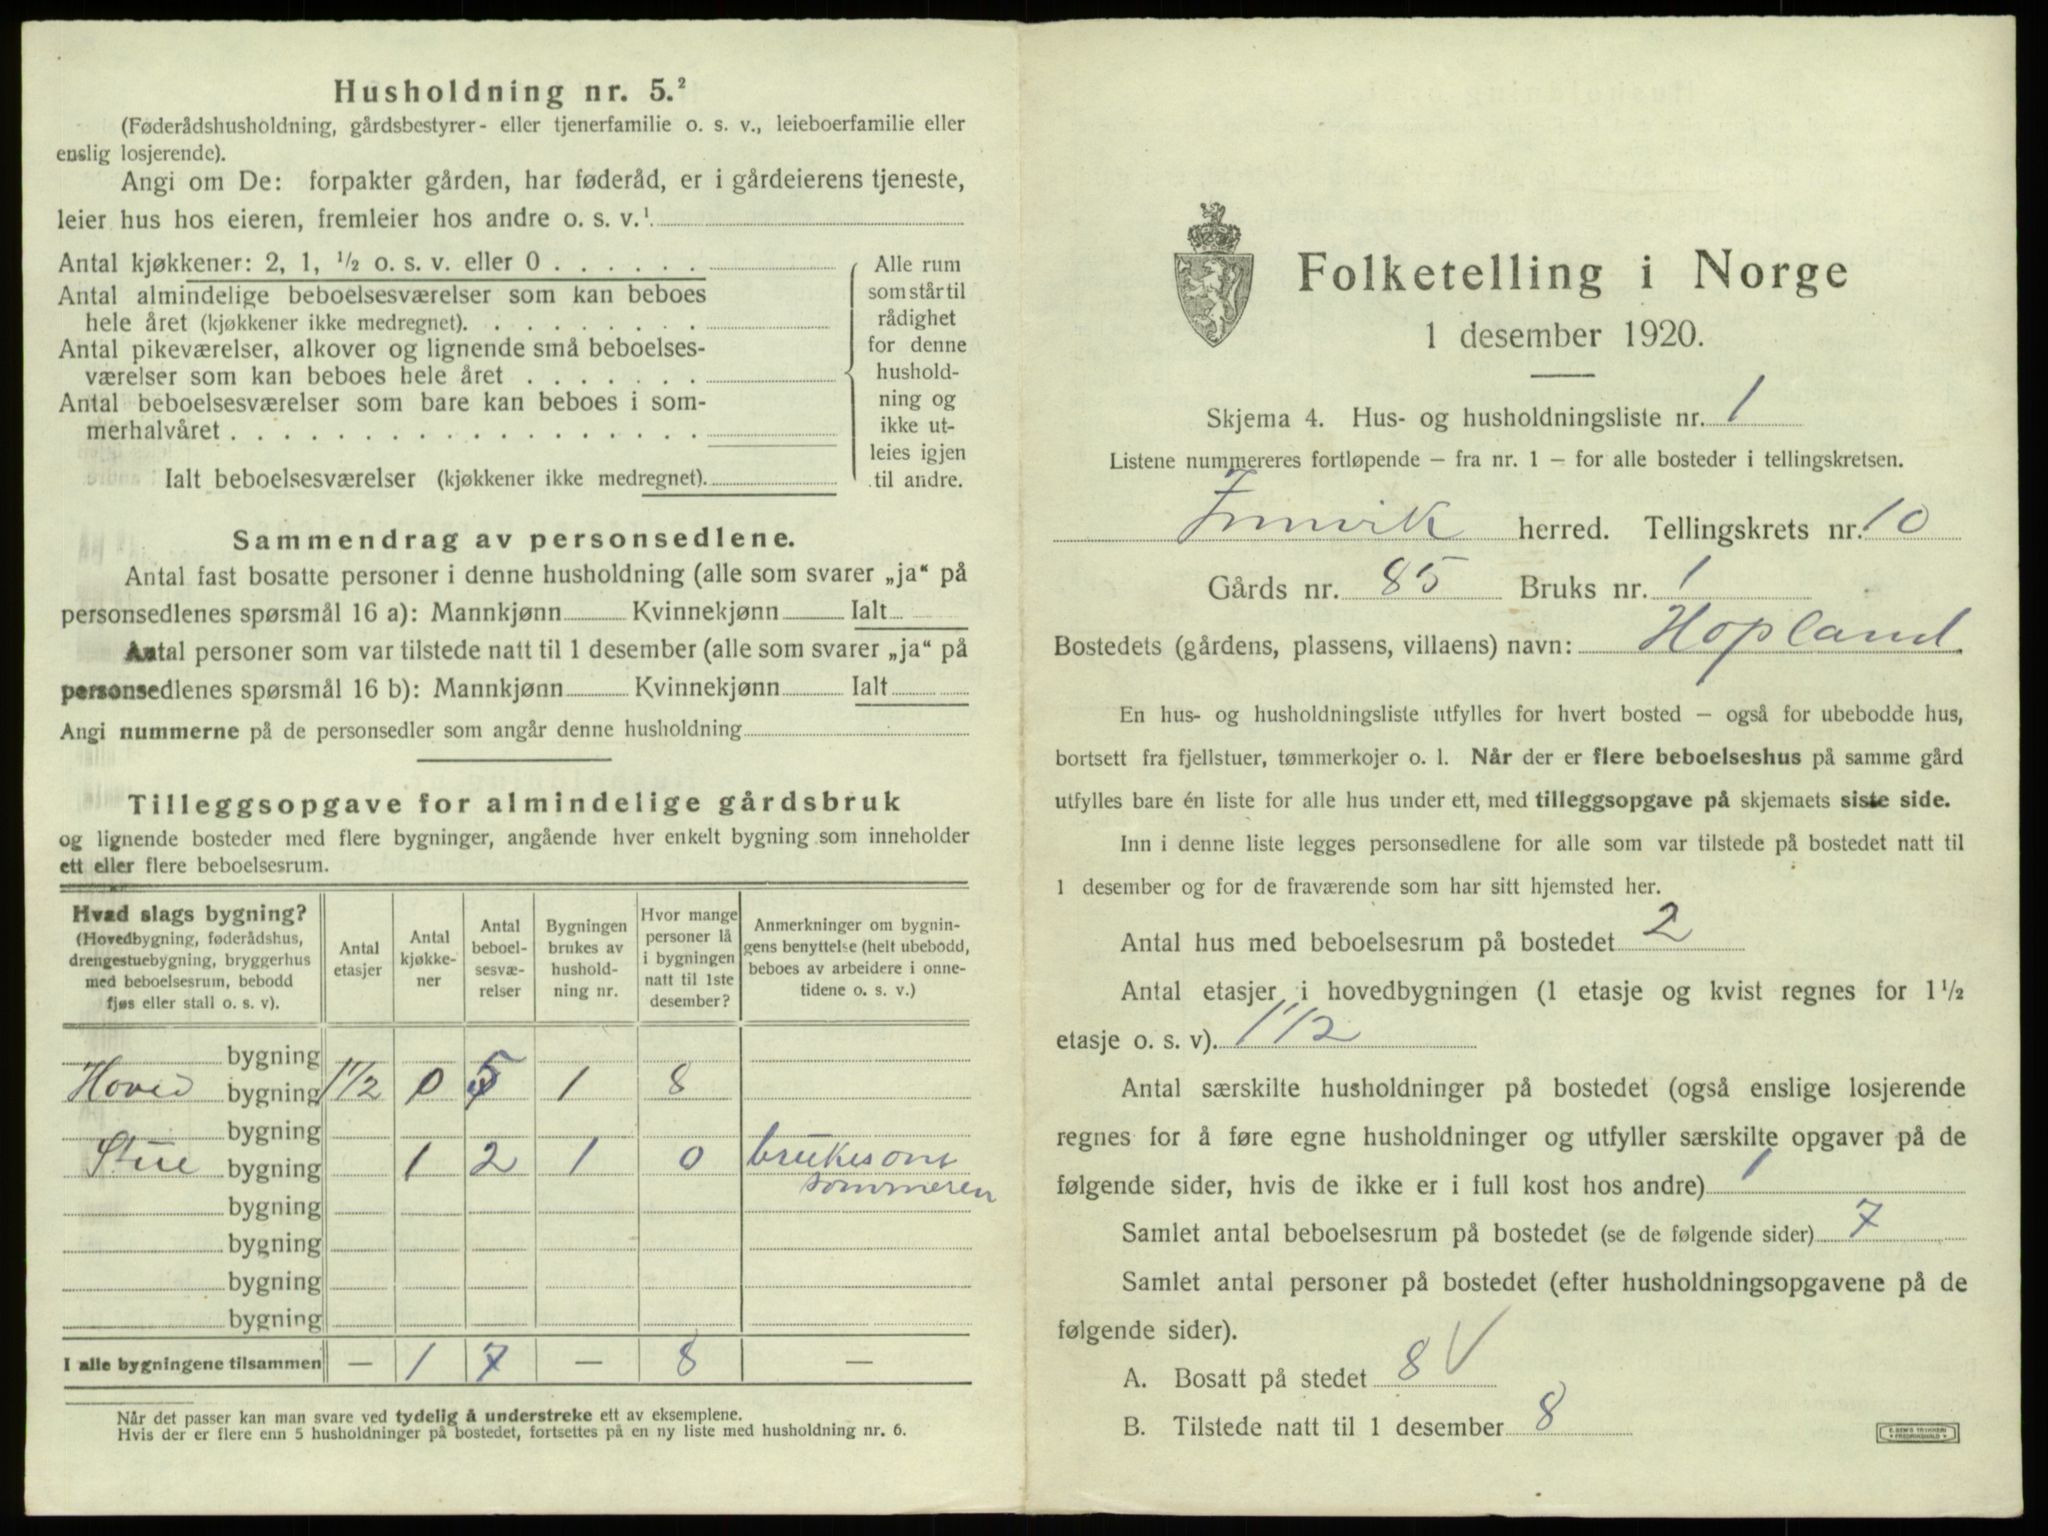 Husholdning nr. 5.²
(Føderådshusholdning, gårdsbestyrer- eller tjenerfamilie o. s. v., leieboerfamilie eller
enslig losjerende).
Angi om De: forpakter gården, har føderåd, er i gårdeierens tjeneste,
leier hus hos eieren, fremleier hos andre o. s. v.¹
Antal kjøkkener: 2, 1, ½ o. s. v. eller 0 . . . . . .
Antal almindelige beboelsesværelser som kan beboes
hele året (kjøkkener ikke medregnet). . . . . . . . .
Antal pikeværelser, alkover og lignende små beboelses-
værelser som kan beboes hele året . . . . . . .
Antal beboelsesværelser som bare kan beboes i som-
merhalvåret . . . . . . . . . . . . . . . . . .
Ialt beboelsesværelser (kjøkkener ikke medregnet).
Alle rum
som står til
rådighet
for denne
hushold-
ning og
ikke ut-
leies igjen
til andre.
Sammendrag av personsedlene.
Antal fast bosatte personer i denne husholdning (alle som svarer „ja“ på
personsedlenes spørsmål 16 a): Mannkjønn Kvinnekjønn Ialt
Antal personer som var tilstede natt til 1 desember (alle som svarer „ja“ på
personsedlenes spørsmål 16 b): Mannkjønn Kvinnekjønn Ialt
Angi nummerne på de personsedler som angår denne husholdning
Tilleggsopgave for almindelige gårdsbruk
og lignende bosteder med flere bygninger, angående hver enkelt bygning som inneholder
ett eller flere beboelsesrum.
Hvad slags bygning?
(Hovedbygning, føderådshus,
drengestuebygning, bryggerhus
med beboelsesrum, bebodd
fjøs eller stall o. s. v).
Antal
etasjer
Antal
kjøkke-
ner
Antal
beboel-
sesvæ-
relser
Bygningen
brukes av
hushold-
ning nr.
Hvor mange
personer lå
i bygningen
natt til 1ste
desember?
Anmerkninger om bygnin-
gens benyttelse (helt ubebodd,
beboes av arbeidere i onne-
tidene o. s. v.)
bygning
Hoved bygning 1 1/2 0 5 1 8
bygning
Stue bygning 1 2 1 0 brukes om
sommeren
bygning
bygning
bygning
bygning
I alle bygningene tilsammen — 1 7 — 8 —
Når det passer kan man svare ved tydelig å understreke ett av eksemplene.
Hvis der er flere enn 5 husholdninger på bostedet, fortsettes på en ny liste med husholdning nr. 6.
Folketelling i Norge
1 desember 1920.
Skjema 4. Hus- og husholdningsliste nr. 1
Listene nummereres fortløpende – fra nr. 1 – for alle bosteder i tellingskretsen.
Innvik herred. Tellingskrets nr. 10
Gårds nr. 85 Bruks nr. 1
Bostedets (gårdens, plassens, villaens) navn: Hopland
En hus- og husholdningsliste utfylles for hvert bosted – også for ubebodde hus,
bortsett fra fjellstuer, tømmerkojer o. l. Når der er flere beboelseshus på samme gård
utfylles bare én liste for alle hus under ett, med tilleggsopgave på skjemaets siste side.
Inn i denne liste legges personsedlene for alle som var tilstede på bostedet natt til
1 desember og for de fraværende som har sitt hjemsted her.
Antal hus med beboelsesrum på bostedet 2
Antal etasjer i hovedbygningen (1 etasje og kvist regnes for 1½
etasje o. s. v). 1 1/2
Antal særskilte husholdninger på bostedet (også enslige losjerende
regnes for å føre egne husholdninger og utfyller særskilte opgaver på de
følgende sider, hvis de ikke er i full kost hos andre) 1
Samlet antal beboelsesrum på bostedet (se de følgende sider) 7
Samlet antal personer på bostedet (efter husholdningsopgavene på de
følgende sider).
A. Bosatt på stedet 8 V
B. Tilstede natt til 1 desember 8